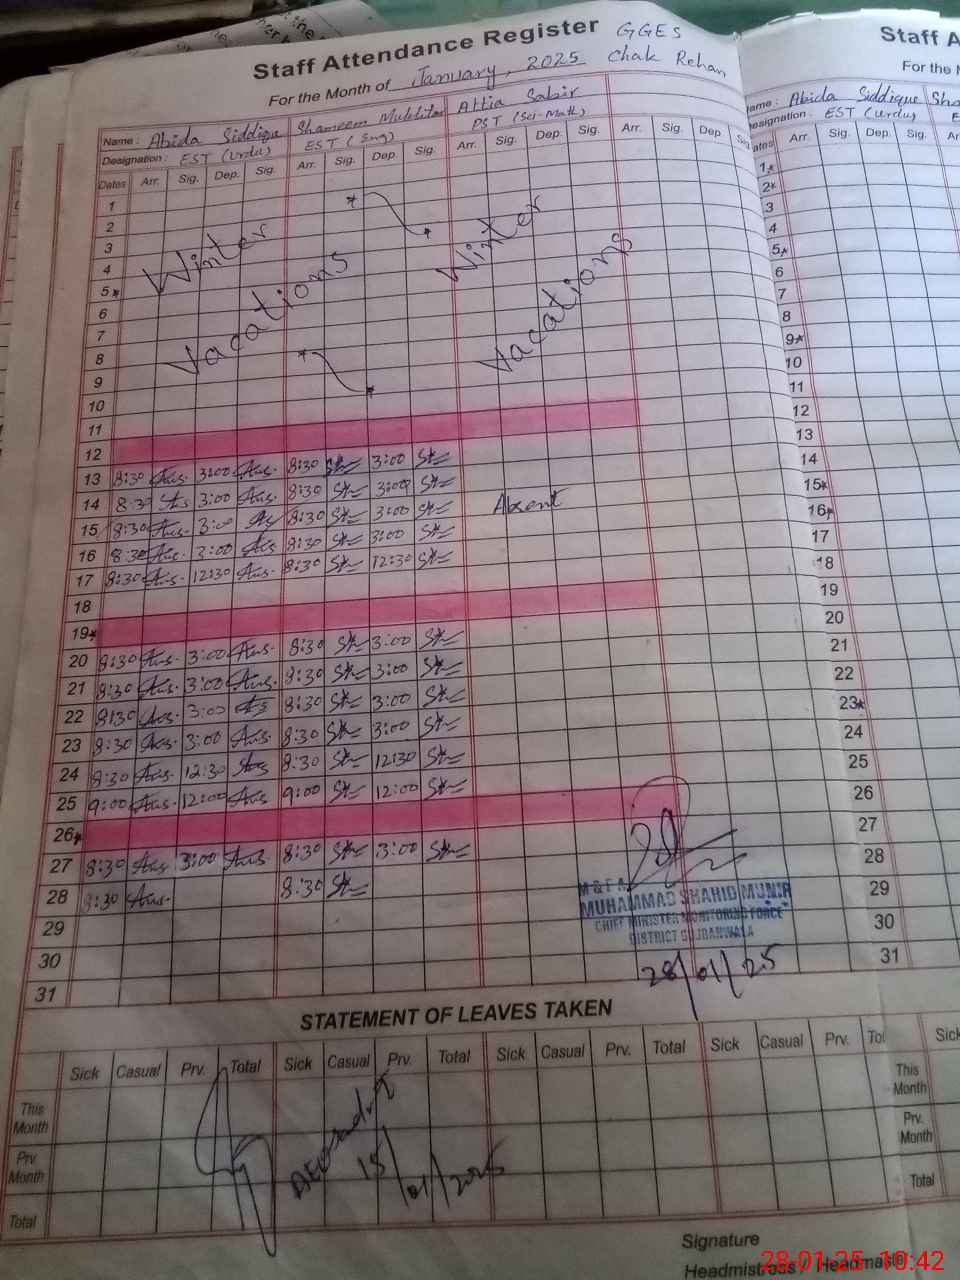 Staff Attendance Register GGES
For the Month of January, 2025 Chak Rehan
Name: Abida Siddique Shameem Mukhtar Attia Sabir
Designation: EST (Urdu) EST (Eng) PST (Sci-Math)
Dates Arr. Sig. Dep. Sig. Arr. Sig. Dep. Sig. Arr. Sig. Dep. Sig. Arr. Sig. Dep. Sig.
1
2
3
4
5*
6
7
8
9
10
Winter Vacations
Winter Vacations
11
12
13 8:30 3:00 8:30 3:00
14 8:30 3:00 8:30 3:00 Absent
15 8:30 3:00 8:30 3:00
16 8:30 3:00 8:30 3:00
17 8:30 12:30 8:30 12:30
18
19*
20 8:30 3:00 8:30 3:00
21 8:30 3:00 8:30 3:00
22 8:30 3:00 8:30 3:00
23 8:30 3:00 8:30 3:00
24 8:30 12:30 8:30 12:30
25 9:00 12:00 9:00 12:00
26*
27 8:30 3:00 8:30 3:00
28 8:30 8:30
29
30
31
M & E A
MUHAMMAD SHAHID MUNIR
CHIEF MINISTER MONITORING FORCE
DISTRICT GUJRANWALA
28/01/25
STATEMENT OF LEAVES TAKEN
Sick Casual Prv. Total Sick Casual Prv. Total Sick Casual Prv. Total Sick Casual Prv. Tol
This Month
Prv. Month
Total
15/01/2025
Signature
Headmistress / Headmaste
Staff A
For the M
ame: Abida Siddique Sha
esignation: EST (Urdu) E
ates Arr. Sig. Dep. Sig. Arr.
1*
2*
3
4
5*
6
7
8
9*
10
11
12
13
14
15*
16*
17
18
19
20
21
22
23*
24
25
26
27
28
29
30
31
Sick
This Month
Prv. Month
Total
28-01-25 10:42